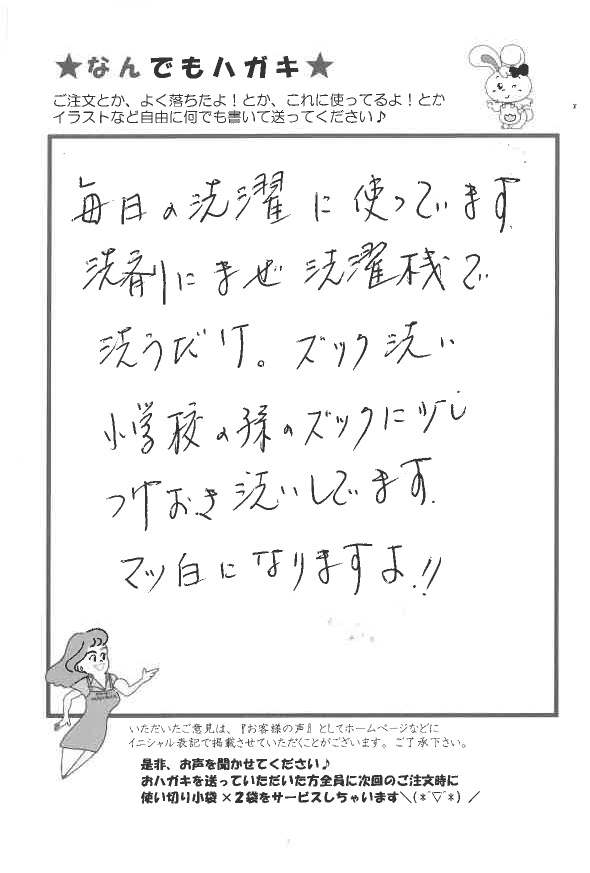 ★なんでもハガキ★
ご注文とか、よく落ちたよ！とか、これに使ってるよ！とか
イラストなど自由に何でも書いて送ってください♪
毎日の洗濯に使っています
洗剤にまぜ洗濯桟で
洗うだけ。ズック洗い
小学校の孫のズックに少し
つけおき洗いしてます.
マッ白になりますよ!!
いただいたご意見は、『お客様の声』としてホームページなどに
イニシャル表記で掲載させていただくことがございます。ご了承下さい。
是非、お声を聞かせてください♪
おハガキを送っていただいた方全員に次回のご注文時に
使い切り小袋×２袋をサービスしちゃいます＼(*´▽`*)／